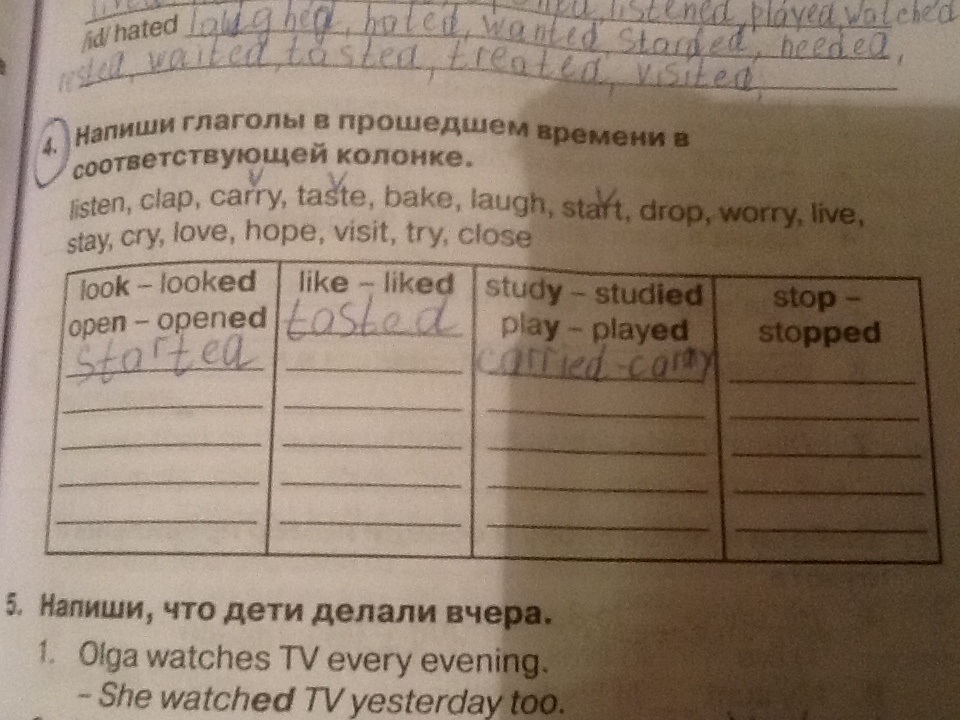 listened, played watched
/id/ hated laughed, hated, wanted, started, needed,
rested, waited, tasted, treated, visited,
4. Напиши глаголы в прошедшем времени в
соответствующей колонке.
listen, clap, carry, taste, bake, laugh, start, drop, worry, live,
stay, cry, love, hope, visit, try, close
look – looked like – liked study – studied stop –
open – opened tasted play – played stopped
started carried-carry
5. Напиши, что дети делали вчера.
1. Olga watches TV every evening.
– She watched TV yesterday too.